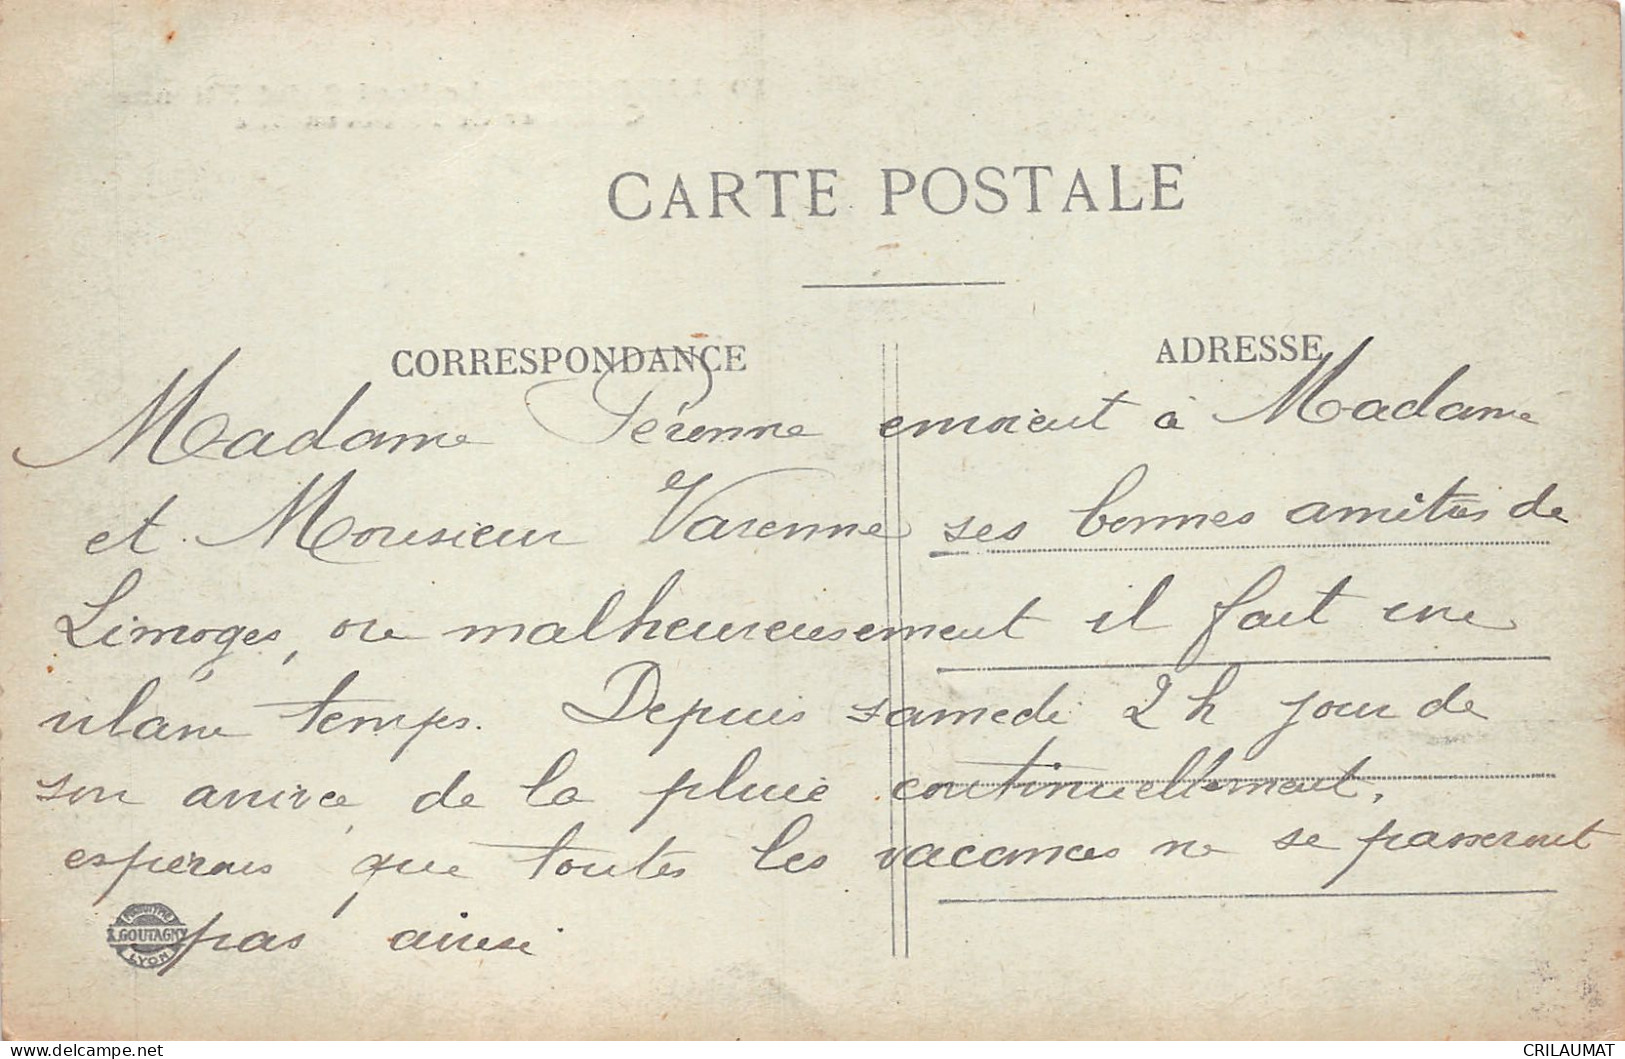 CARTE POSTALE
CORRESPONDANCE
ADRESSE
Madame Pérenne envoient à Madame
et Monsieur Varenne ses bonnes amitiés de
Limoges, ou malheureusement il fait une
vilane temps. Depuis samedi 2 h jour de
son arivée de la pluie continuellement,
esperons que toutes les vacances ne se passeront
pas ainsi
A. GOUTAGNY
LYON
CRILAUMAT